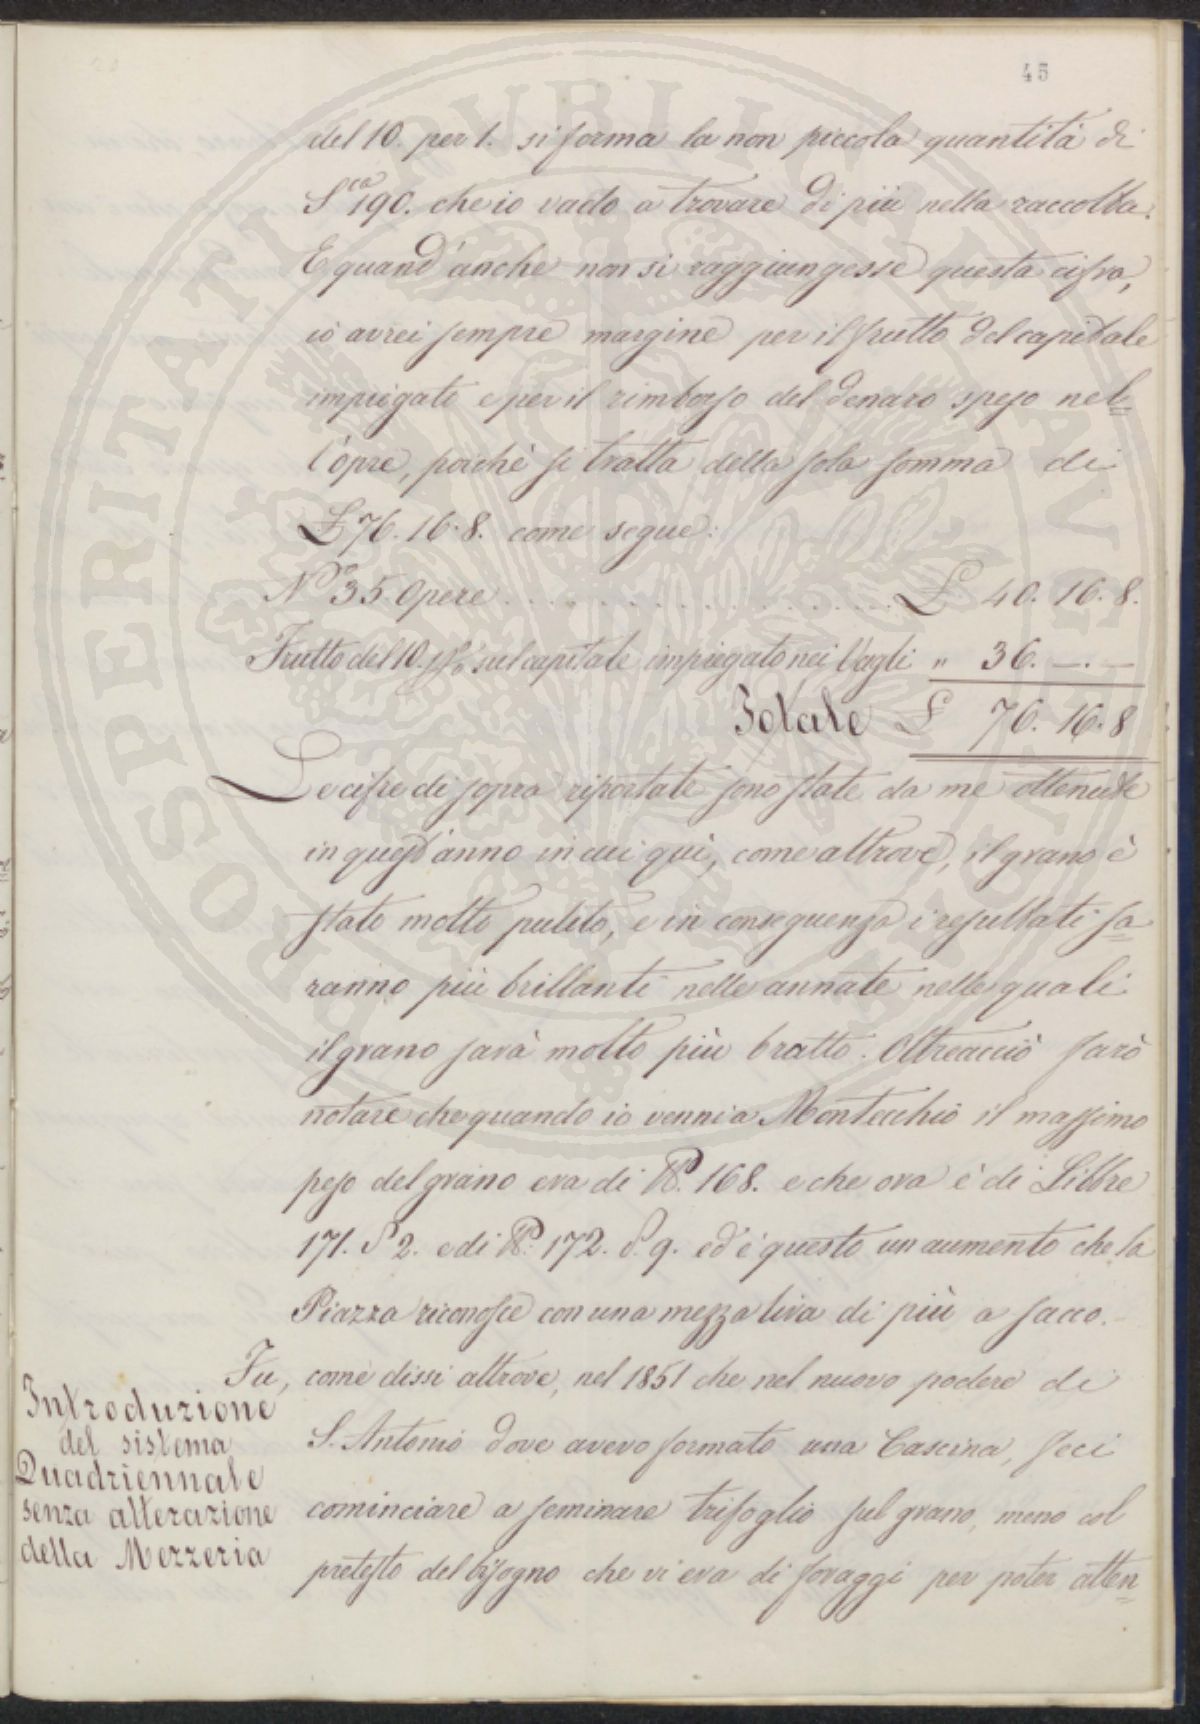 45
del 10. per 1. si forma la non piccola quantità di
S.ca 190. che io vado a trovare di più nella raccolta.
E quand'anche non si raggiungesse questa cifra,
io avrei sempre margine per il frutto del capitale
impiegato e per il rimborso del denaro speso nel=
l'opre, poichè si tratta della sola somma di
£ 76. 16. 8. come segue:
N° 35. Opere . . . . . . . . . . . . . . . £ 40. 16. 8.
Frutto del 10. p% sul capitale impiegato nei Vagli " 36. —. —
Totale £ 76. 16. 8
Le cifre di sopra riportate sono state da me ottenute
in quest'anno in cui quì, come altrove, il grano è
stato molto pulito, e in conseguenza i resultati sa=
ranno più brillanti nelle annate nelle quali
il grano sarà molto più bratto. Oltreacciò farò
notare che quando io venni a Montecchio il massimo
peso del grano era di ℔. 168. e che ora è di Libbre
171. d 2. e di ℔. 172. d. 9. ed è questo un aumento che la
Piazza riconosce con una mezza lira di più a sacco.
Introduzione
del sistema
Quadriennale
senza alterazione
della Mezzeria
Fu, come dissi altrove, nel 1851 che nel nuovo podere di
S. Antonio dove avevo formato una Cascina, feci
cominciare a seminare trifoglio sul grano, meno col
pretesto del bisogno che vi era di foraggi per poter atten=
PROSPERITATI PVBLICAE AVGENDAE